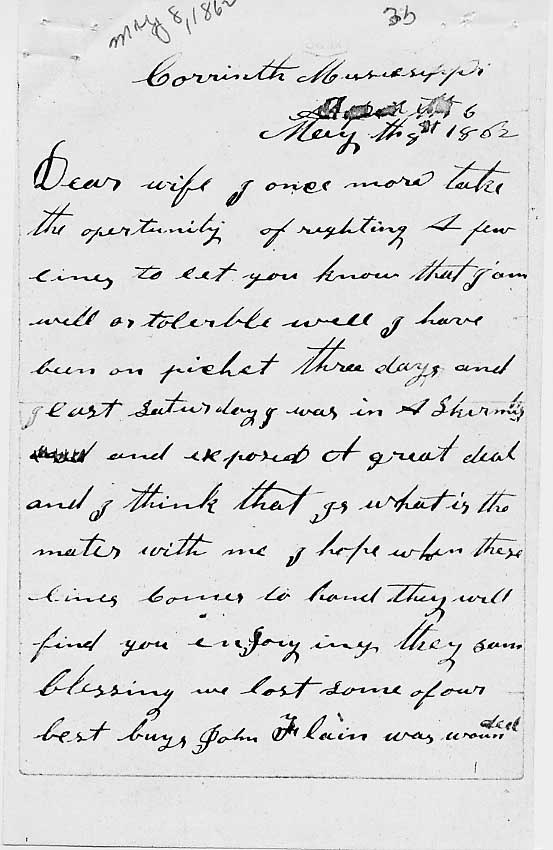 May 8, 1862
35
Corrinth Mississippi
6
May th 8st 1862
Dear wife I once more take
the opertunity of reighting A few
lines to let you know that I am
well or tolerble well I have
been on picket three days and
last Saturday I was in A Skirmis
and exposed A great deal
and I think that is what is the
mater with me I hope when these
lines comes to hand they will
find you enjoying they sam
blessing we lost some of our
best buys John was wounded